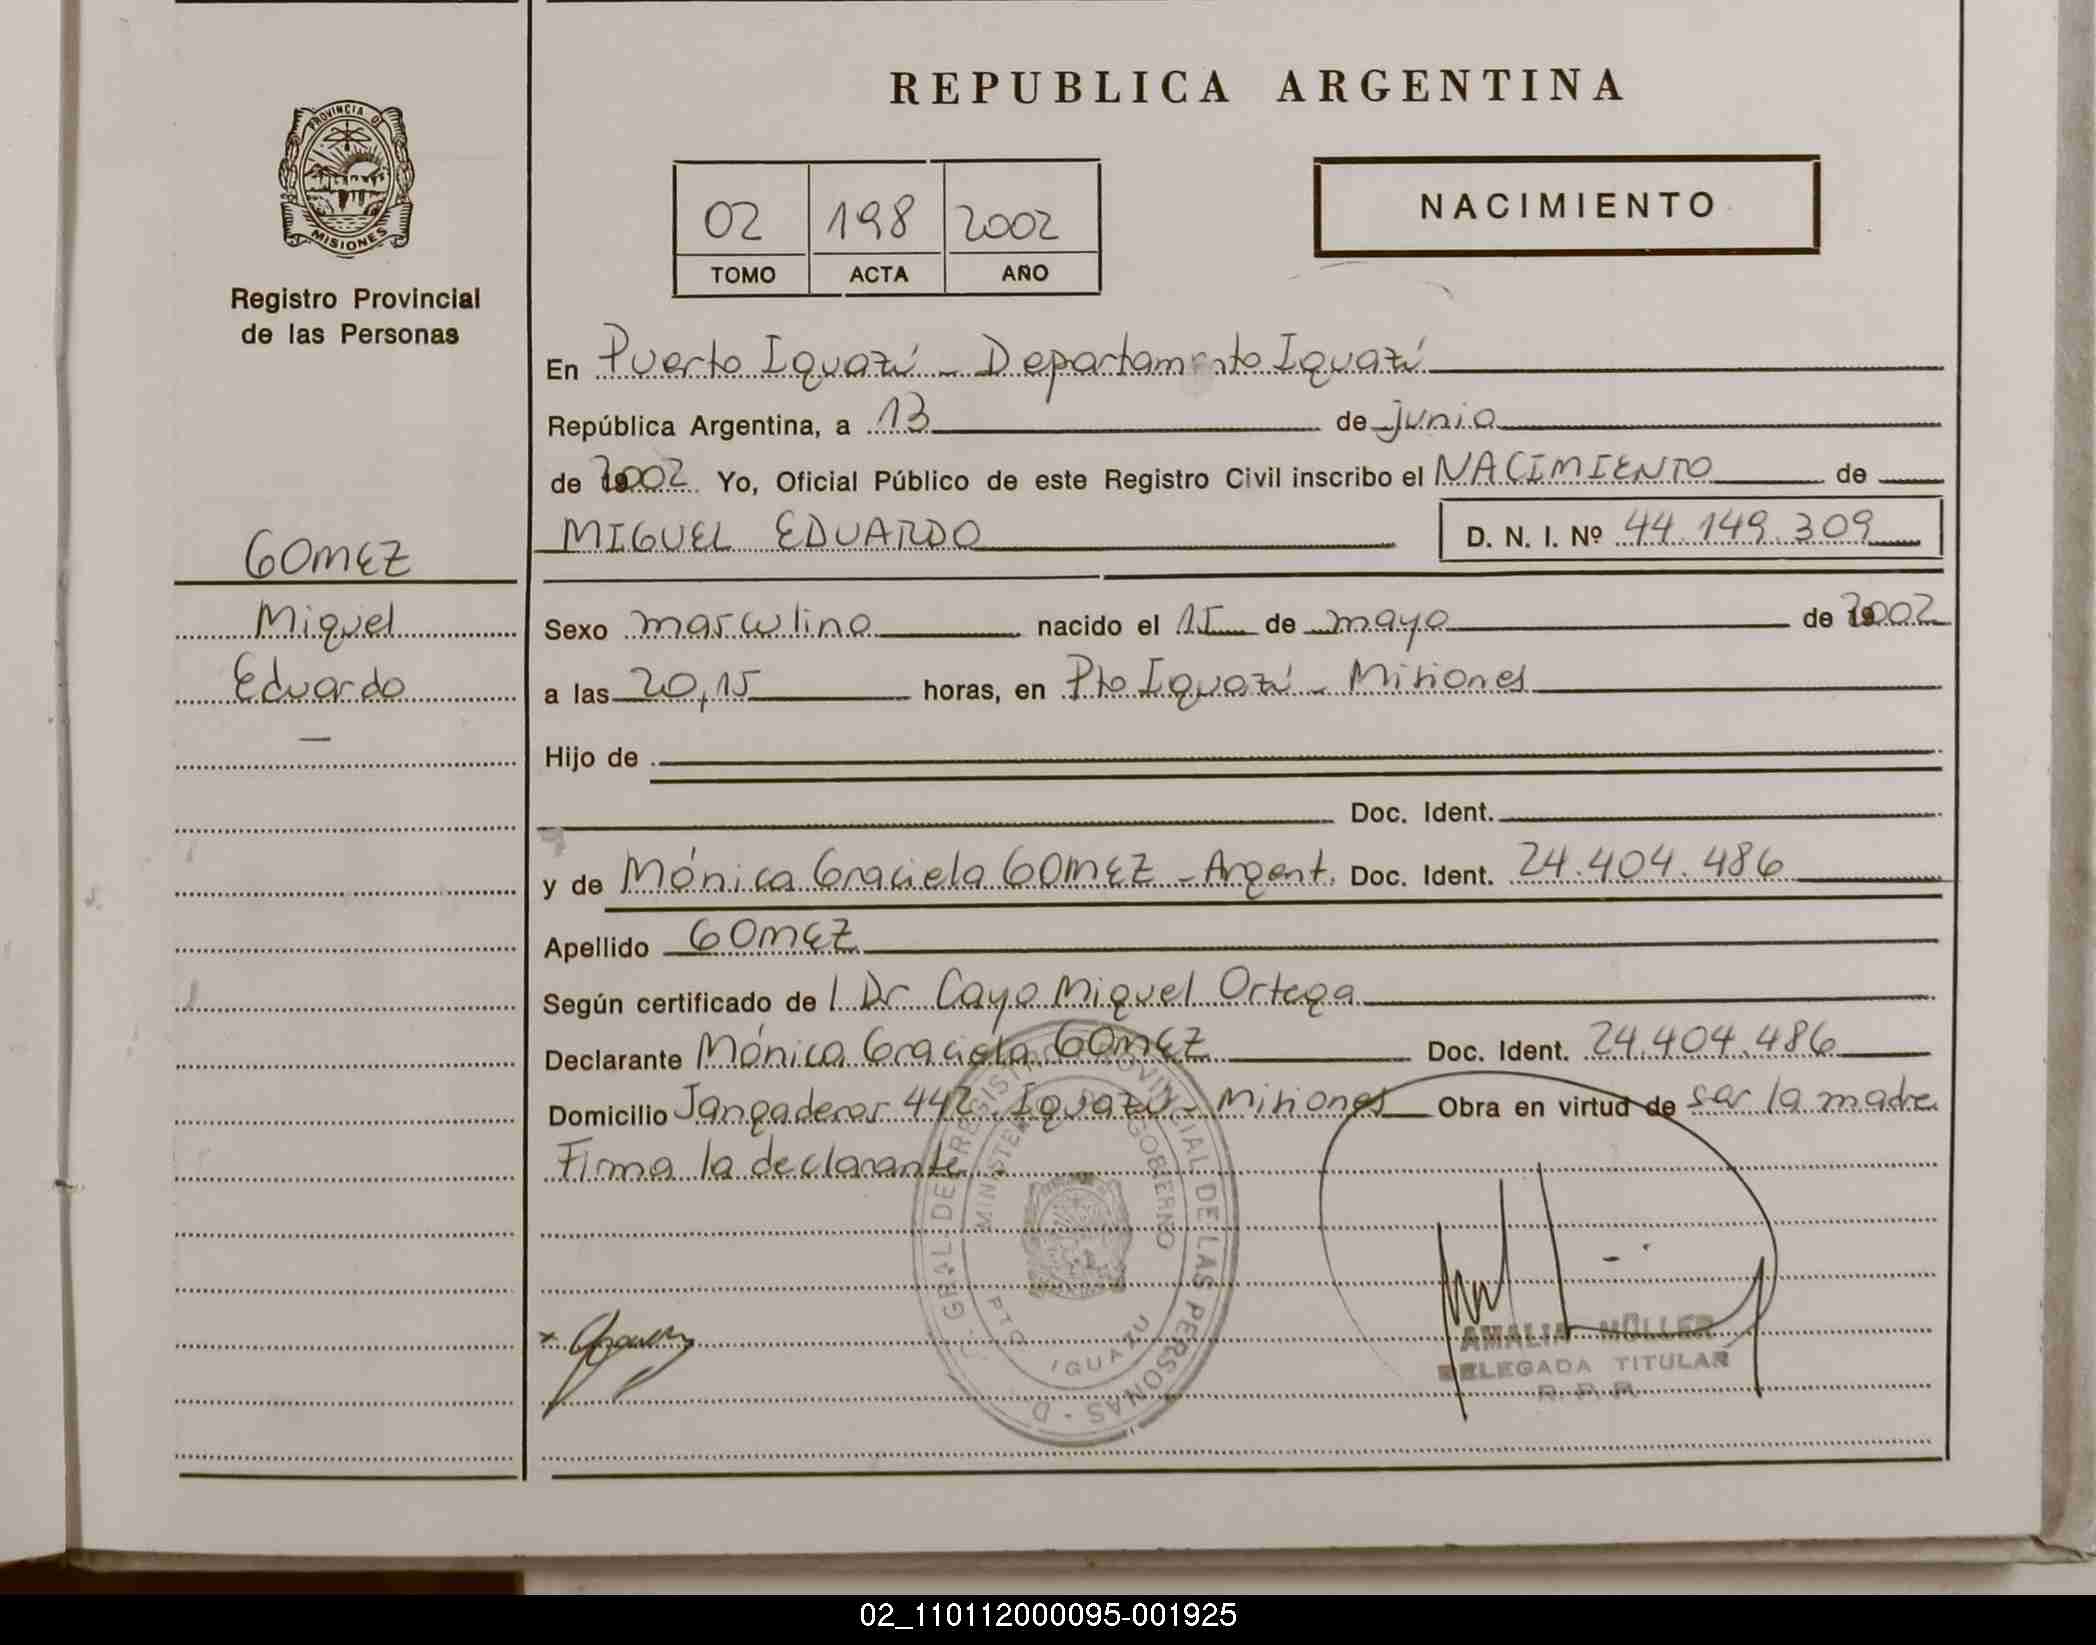 REPUBLICA ARGENTINA
PROVINCIA DE
MISIONES
Registro Provincial
de las Personas
02 198 2002
TOMO ACTA AÑO
NACIMIENTO
En Puerto Iguazú - Departamento Iguazú
República Argentina, a 13 de junio
de 2002 Yo, Oficial Público de este Registro Civil inscribo el NACIMIENTO de
MIGUEL EDUARDO D. N. I. Nº 44.149.309
GOMEZ
Miguel
Eduardo
Sexo masculino nacido el 15 de mayo de 2002
a las 20,15 horas, en Pto Iguazú - Misiones
Hijo de
Doc. Ident.
y de Mónica Graciela GOMEZ - Argent. Doc. Ident. 24.404.486
Apellido GOMEZ
Según certificado de l Dr Cayo Miguel Ortega
Declarante Mónica Graciela GOMEZ Doc. Ident. 24.404.486
Domicilio Jangaderos 442. Iguazú - Misiones Obra en virtud de ser la madre
Firma la declarante.
D. GRAL. DEL REGISTRO PROVINCIAL DE LAS PERSONAS
MINISTERIO DE GOBERNO
PTO IGUAZU
AMALIA MÜLLER
DELEGADA TITULAR
R. P. P.
02_110112000095-001925